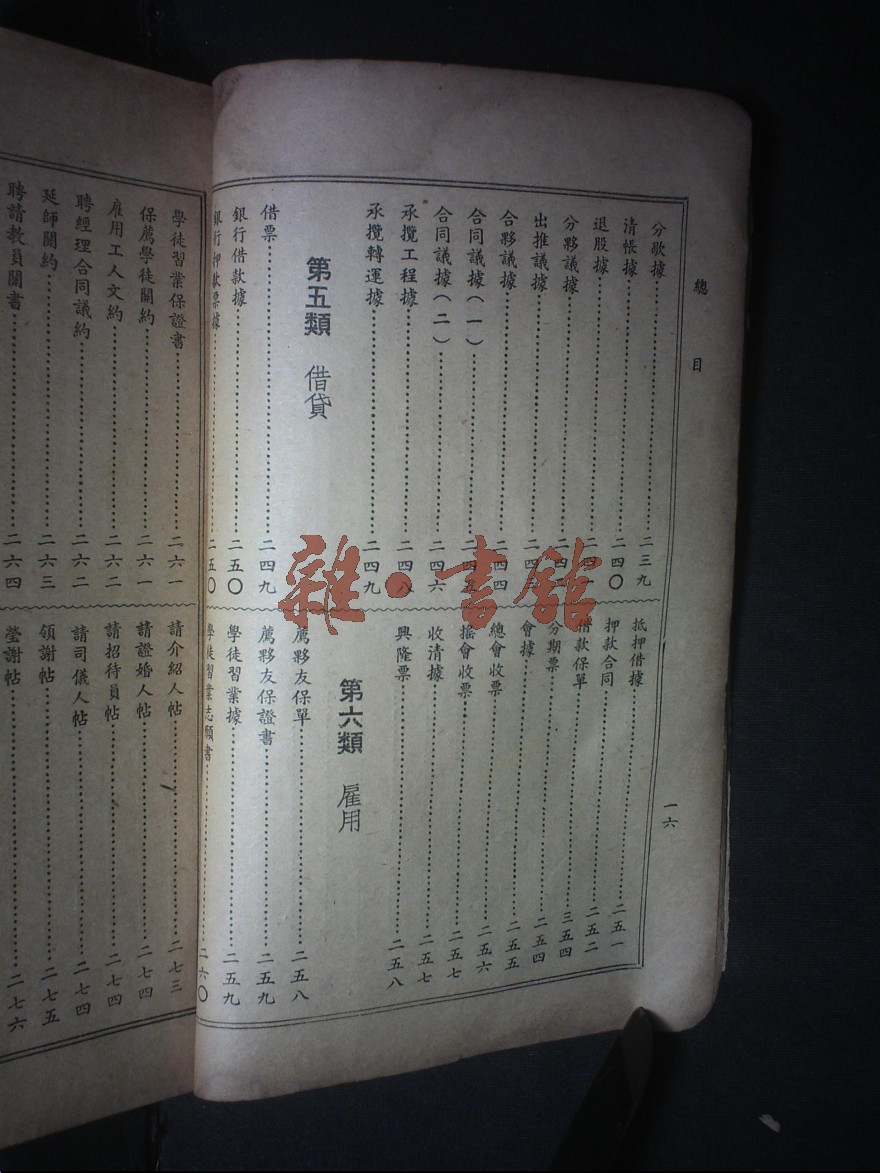 總目
一六
分歇據……二三九
清帳據……二四〇
退股據……二四一
分夥議據……二四
出推議據……二四
合夥議據……二四四
合同議據(一)……二四五
合同議據(二)……二四六
承攬工程據……二四八
承攬轉運據……二四九
第五類 借貸
借票……二四九
銀行借款據……二五〇
銀行押款票據……二五〇
抵押借據……二五一
押款合同……二五二
借款保單……三五四
分期票……二五四
會據……二五五
總會收票……二五六
搖會收票……二五七
收清據……二五七
興隆票……二五八
第六類 雇用
薦夥友保單……二五八
薦夥友保證書……二五九
學徒習業據……二五九
學徒習業志願書……二六〇
學徒習業保證書……二六一
保薦學徒關約……二六一
雇用工人文約……二六二
聘經理合同議約……二六二
延師關約……二六三
聘請教員關書……二六四
請介紹人帖……二七三
請證婚人帖……二七四
請招待員帖……二七四
請司儀人帖……二七四
領謝帖……二七五
瑩謝帖……二七六
雜·書館